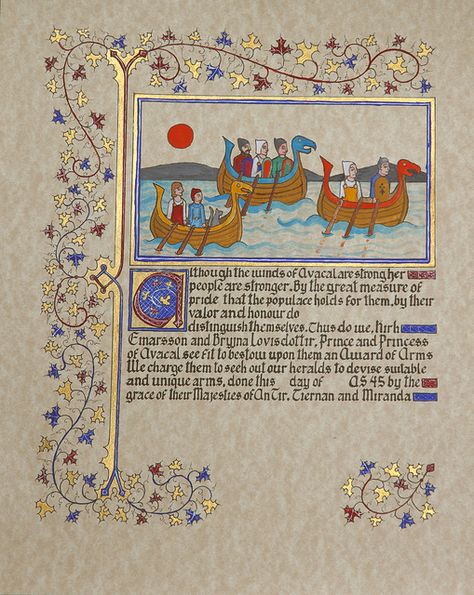 Although the winds of Avacal are strong her
people are stronger. By the great measure of
pride that the populace holds for them, by their
valor and honour do
distinguish themselves. Thus do we,
Emarsson and Bryjna Lovisdottir, Prince and Princess
of Avacal see fit to bestow upon them an Award of Arms
We charge them to seek out our heralds to devise suitable
and unique arms, done this day of AS 45 by the
grace of their Majesties of An Tir, Tiernan and Miranda